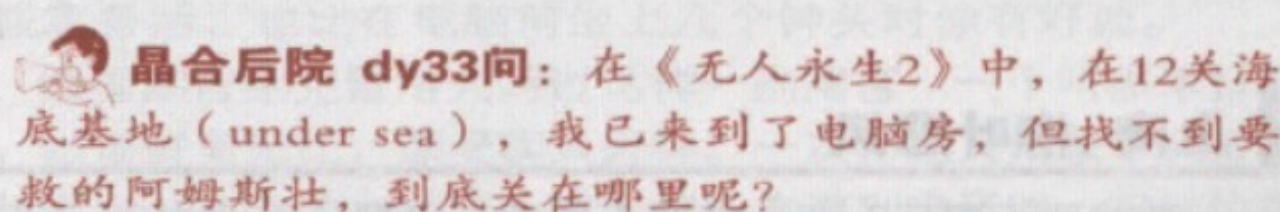 晶合后院 dy33问：在《无人永生2》中，在12关海
底基地（under sea），我已来到了电脑房，但找不到要
救的阿姆斯壮，到底关在哪里呢？